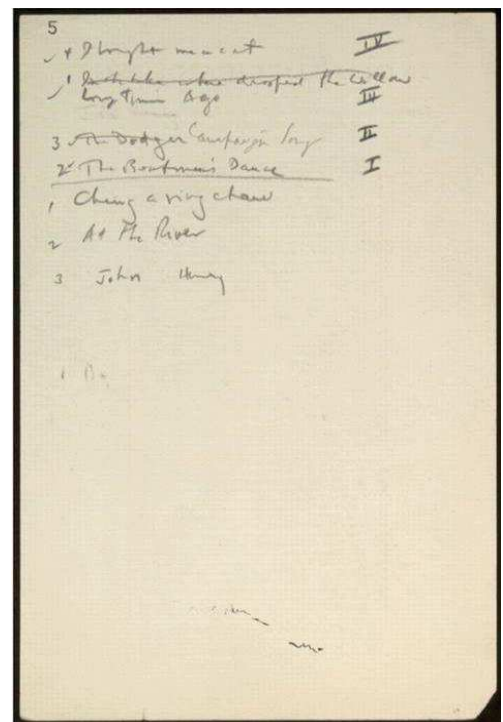 5
✓ 4 I bought me a cat IV
✓ 1 In the lake where drooped the willow
Long time Ago III
3 The Dodger Campaign Song II
2 The Boatmen's Dance I
1 Ching a ring chaw
2 At The River
3 John Henry
1